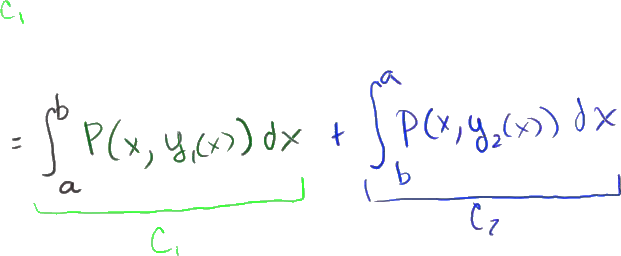 C₁
= ∫_a^b P(x, y₁(x)) dx + ∫_b^a P(x, y₂(x)) dx
C₁ C₂